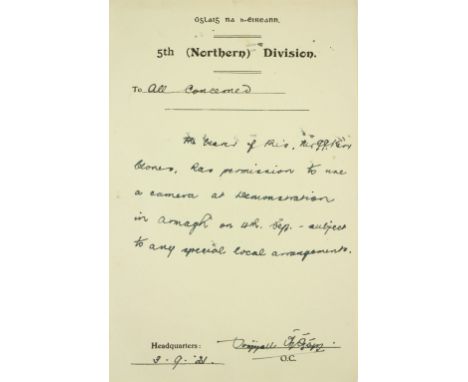 Óglaiġ na h-Éireann.
5th (Northern) Division.
To All Concerned
The bearer of this,
Clones, has permission to use
a camera at Demonstration
in Armagh on 4th. Sep. - subject
to any special local arrangements.
Headquarters:
3-9-'21
O.C.